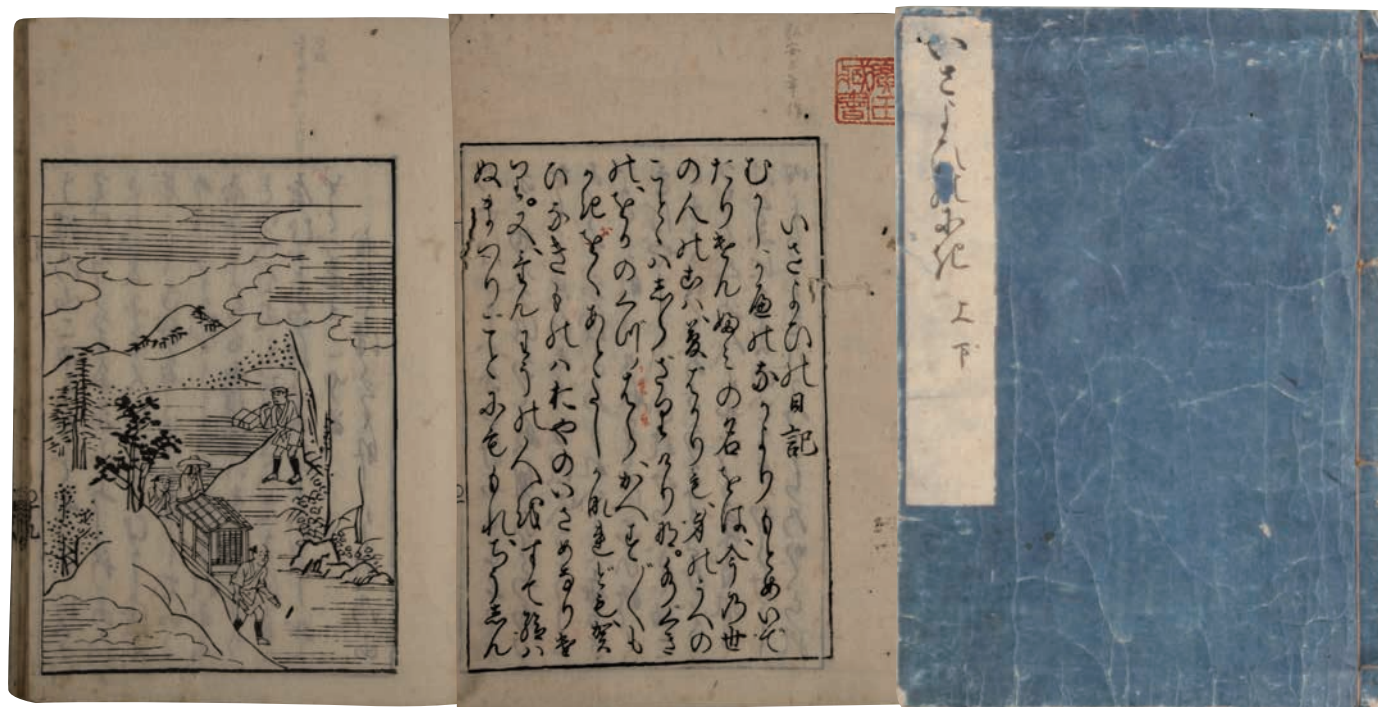 いさよひのにき 上下
いさよひの日記
むかしかへのなかよりもとめいて
たりけんふみの名をは、今の世
の人の子ハ、夢はかりも、身のうへの
ことゝハしらさりけりな。みつくき
の、をかのくすはら、かへす〲も
かきをくあとたしかなれども、か
ひなきものハおやのいさめなりけ
り。又、けんわうの人をすて給ハ
ぬまつりことにももれ、ちうしん